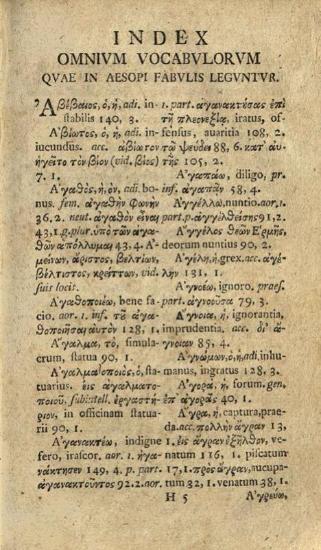 INDEX
OMNIVM VOCABVLORVM
QVAE IN AESOPI FABVLIS LEGVNTVR.
Ἀβέβαιος, ὁ, ἡ, adi. in-
stabilis 140, 3.
Ἀβίωτος, ὁ, ἡ, adi. in-
iucundus. acc. ἀβίωτον
ἡγεῖτο τὸν βίον (vid. βίος)
7. 1.
Ἀγαθὸς, ἡ, ὸν, adi. bo-
nus. fem. ἀγαθὴν Φωνὴν
36. 2. neut. ἀγαθὸν εἶναι
43, 1. g. plur. ὑπὸ τῶν ἀγα-
θῶν ἀπόλλυμαι 43, 4. Ἀ-
μείνων, ἄριστος, βελτίων,
βέλτιστος, κρείττων, vid.
suis locit.
Ἀγαθοποιέω, bene fa-
cio. aor. 1. inf. τῷ ἀγα-
θοποιῆσαι αυτὸν 128, 1.
Ἄγαλμα, τὸ, simula-
crum, statua 90, 1.
Ἀγαλματοποιὸς, ὁ, sta-
tuarius. εἰς ἀγαλματο-
ποιοῦ. subistell. ἐργαστή-
ριον, in officinam statua-
rii 90, 1.
Ἀγανακτέω, indigne
fero, irascor. aor. 1. ἠγα-
νάκτησεν 149, 4. p. part.
ἀγανακτοῦντος 92. 2. aor.
1. part. ἀγανακτήσας ἐπὶ
τῇ πλεονεξίᾳ, iratus, of-
fensus, avaritia 108, 2.
τῷ ψεύδει 88, 6. κατ αυ-
τῆς 105, 2.
Ἀγαπάω, diligo, pr.
inf. ἀγαπᾶν 58, 4.
Ἀγγέλλω, nuntio. aor. 1.
part. p. ἀγγελθείσης 91, 2.
Ἄγγελος θεῶν Ἑρμῆς,
deorum nuntius 90, 2.
Ἀγέλη, ἡ, grex. acc. ἀγέ-
λην 131, 1.
Ἀγνοέω, ignoro. praes.
part. ἀγνοοῦσα 79, 3.
Ἄγνοια, ἡ, ignorantia,
imprudentia. acc. δι' ἄ-
γνοιαν 85, 4.
Ἀγνώμων, ὁ, ἡ, adi. inhu-
manus, ingratus 128, 3.
Ἀγορὰ, ἡ, forum. gen.
ἐπ' ἀγορᾶς 40, 1.
Ἄγρα, ἡ, captura, prae-
da. acc. πολλὴν ἄγραν 13,
1. εἰς ἄγραν ἐξῆλθον, ve-
natum 116, 1. piscatum
17, 1. πρὸς ἄγραν, aucupa-
tum 32, 1. venatum 38, 1.
H 5
Ἀγρεύω,